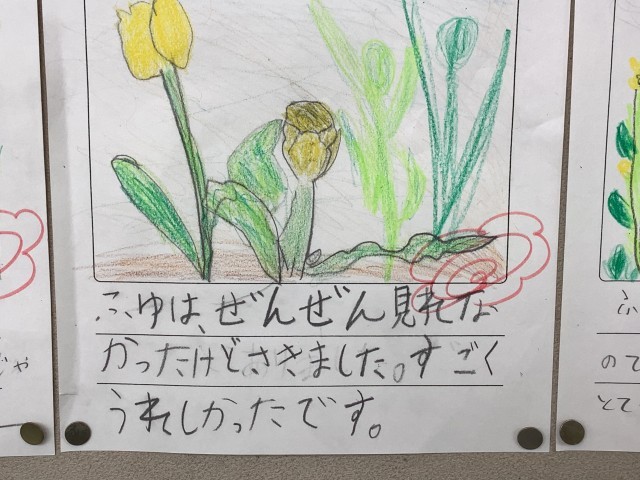 ふゆは、ぜんぜん見れな
かったけどさきました。すごく
うれしかったです。